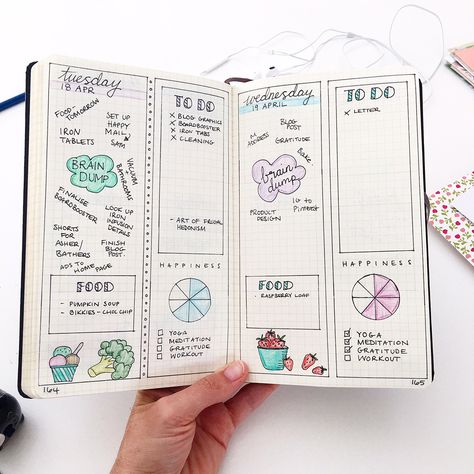 tuesday
18 APR
FOOD
TOMORROW
SET UP
HAPPY
MAIL
IRON
TABLETS
SAM
BRAIN
DUMP
VACUUM
+
BATHROOMS
FINALISE
BOARDBOOSTER
LOOK UP
IRON
INFUSION
DETAILS
SHORTS
FOR
ASHER/
BATHERS
FINISH
BLOG
POST.
ADS TO HOME PAGE
FOOD
- PUMPKIN SOUP
- BIKKIES - CHOC CHIP
164
TO DO
X BLOG GRAPHICS
X BOARDBOOSTER
X IRON TABS
X CLEANING
- ART OF FRUGAL
HEDONISM
HAPPINESS
YOGA
MEDITATION
GRATITUDE
WORKOUT
wednesday
19 APRIL
ADDRESS
BLOG
POST
GRATITUDE
Bake
brain
dump
IG to
Pinterest
PRODUCT
DESIGN
FOOD
- RASPBERRY LOAF
TO DO
X LETTER
HAPPINESS
YOGA
MEDITATION
GRATITUDE
WORKOUT
165